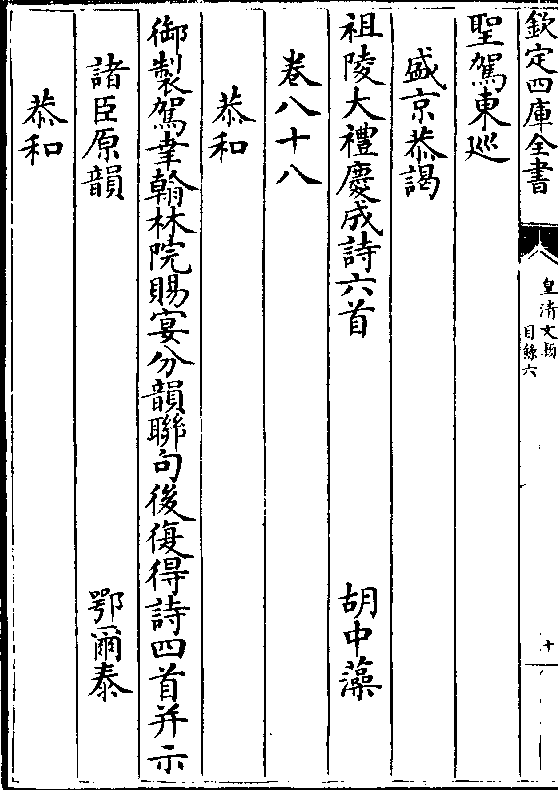 欽定四庫全書
皇清文穎
目錄六
十
聖駕東巡
盛京恭謁
祖陵大禮慶成詩六首 胡中藻
卷八十八
恭和
御製駕幸翰林院賜宴分韻聯句後復得詩四首并示
諸臣原韻 鄂爾泰
恭和